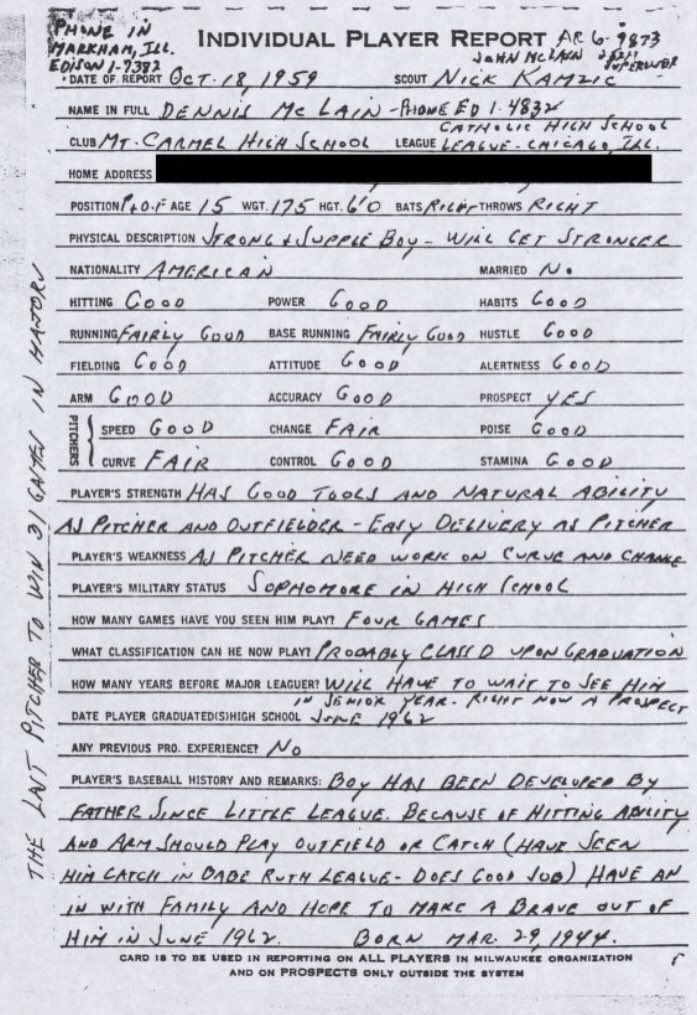 PHONE IN
MARKHAM, ILL.
EDISON 1-7382
INDIVIDUAL PLAYER REPORT
9873
JOHN MCLAIN
DATE OF REPORT OCT. 18, 1959 SCOUT NICK KAMZIC
NAME IN FULL DENNIS MC LAIN - PHONE ED 1-4832
CLUB MT. CARMEL HIGH SCHOOL LEAGUE CATHOLIC HIGH SCHOOL
LEAGUE - CHICAGO, ILL.
HOME ADDRESS
POSITION P+O.F AGE 15 WGT. 175 HGT. 6'0 BATS RIGHT THROWS RIGHT
PHYSICAL DESCRIPTION STRONG + SUPPLE BOY - WILL GET STRONGER
NATIONALITY AMERICAN MARRIED NO
HITTING GOOD POWER GOOD HABITS GOOD
RUNNING FAIRLY GOOD BASE RUNNING FAIRLY GOOD HUSTLE GOOD
FIELDING GOOD ATTITUDE GOOD ALERTNESS GOOD
ARM GOOD ACCURACY GOOD PROSPECT YES
PITCHERS
SPEED GOOD CHANGE FAIR POISE GOOD
CURVE FAIR CONTROL GOOD STAMINA GOOD
PLAYER'S STRENGTH HAS GOOD TOOLS AND NATURAL ABILITY
AS PITCHER AND OUTFIELDER - EASY DELIVERY AS PITCHER
PLAYER'S WEAKNESS AS PITCHER NEED WORK ON CURVE AND CHANGE
PLAYER'S MILITARY STATUS SOPHOMORE IN HIGH SCHOOL
HOW MANY GAMES HAVE YOU SEEN HIM PLAY? FOUR GAMES
WHAT CLASSIFICATION CAN HE NOW PLAY? PROBABLY CLASS D UPON GRADUATION
HOW MANY YEARS BEFORE MAJOR LEAGUER? WILL HAVE TO WAIT TO SEE HIM
IN SENIOR YEAR. RIGHT NOW A PROSPECT
DATE PLAYER GRADUATED(S) HIGH SCHOOL JUNE 1962
ANY PREVIOUS PRO. EXPERIENCE? NO
PLAYER'S BASEBALL HISTORY AND REMARKS: BOY HAS BEEN DEVELOPED BY
FATHER SINCE LITTLE LEAGUE. BECAUSE OF HITTING ABILITY
AND ARM SHOULD PLAY OUTFIELD OR CATCH (HAVE SEEN
HIM CATCH IN BABE RUTH LEAGUE - DOES GOOD JOB) HAVE AN
IN WITH FAMILY AND HOPE TO MAKE A BRAVE OUT OF
HIM IN JUNE 1962. BORN MAR. 29, 1944.
CARD IS TO BE USED IN REPORTING ON ALL PLAYERS IN MILWAUKEE ORGANIZATION
AND ON PROSPECTS ONLY OUTSIDE THE SYSTEM
THE LAST PITCHER TO WIN 31 GAMES IN MAJORS